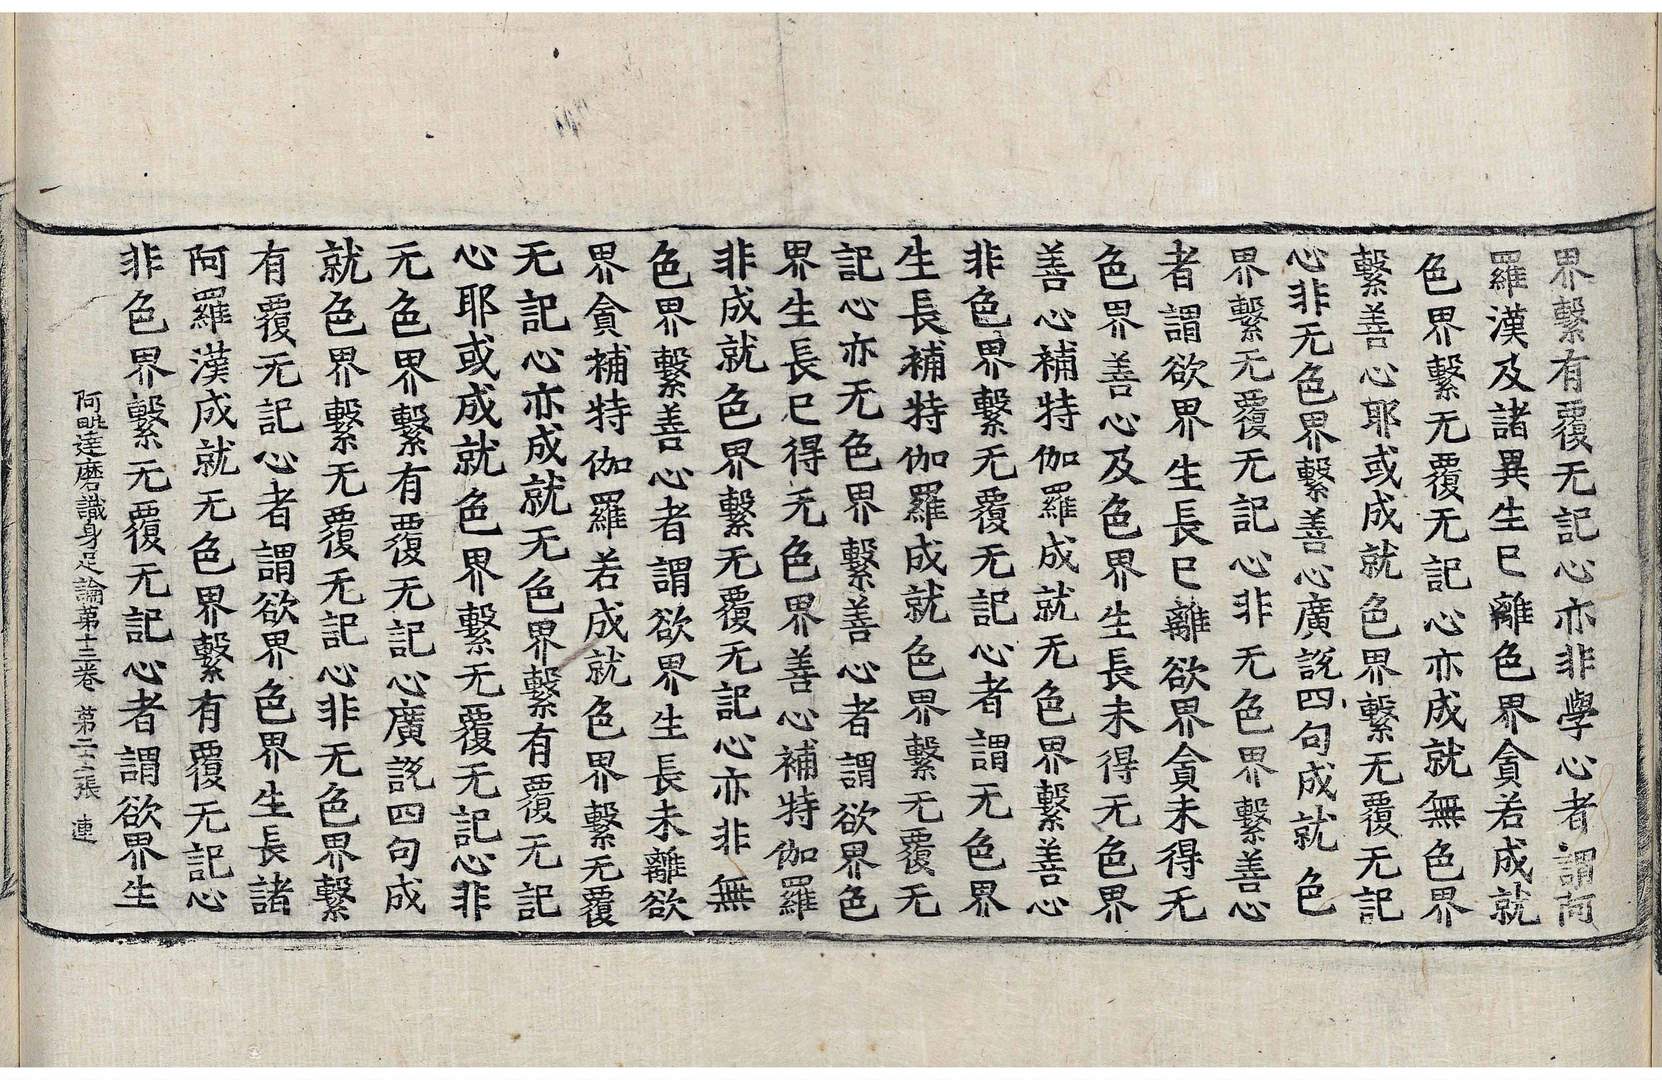 界繫有覆无記心亦非學心者謂阿
羅漢及諸異生已離色界貪若成就
色界繫无覆无記心亦成就無色界
繫善心耶或成就色界繫无覆无記
心非无色界繫善心廣說四句成就色
界繫无覆无記心非无色界繫善心
者謂欲界生長已離欲界貪未得无
色界善心及色界生長未得无色界
善心補特伽羅成就无色界繫善心
非色界繫无覆无記心者謂无色界
生長補特伽羅成就色界繫无覆无
記心亦无色界繫善心者謂欲界色
界生長已得无色界善心補特伽羅
非成就色界繫无覆无記心亦非無
色界繫善心者謂欲界生長未離欲
界貪補特伽羅若成就色界繫无覆
无記心亦成就无色界繫有覆无記
心耶或成就色界繫无覆无記心非
无色界繫有覆无記心廣說四句成
就色界繫无覆无記心非无色界繫
有覆无記心者謂欲界色界生長諸
阿羅漢成就无色界繫有覆无記心
非色界繫无覆无記心者謂欲界生
阿毗達磨識身足論第十三卷 第二十二張 連